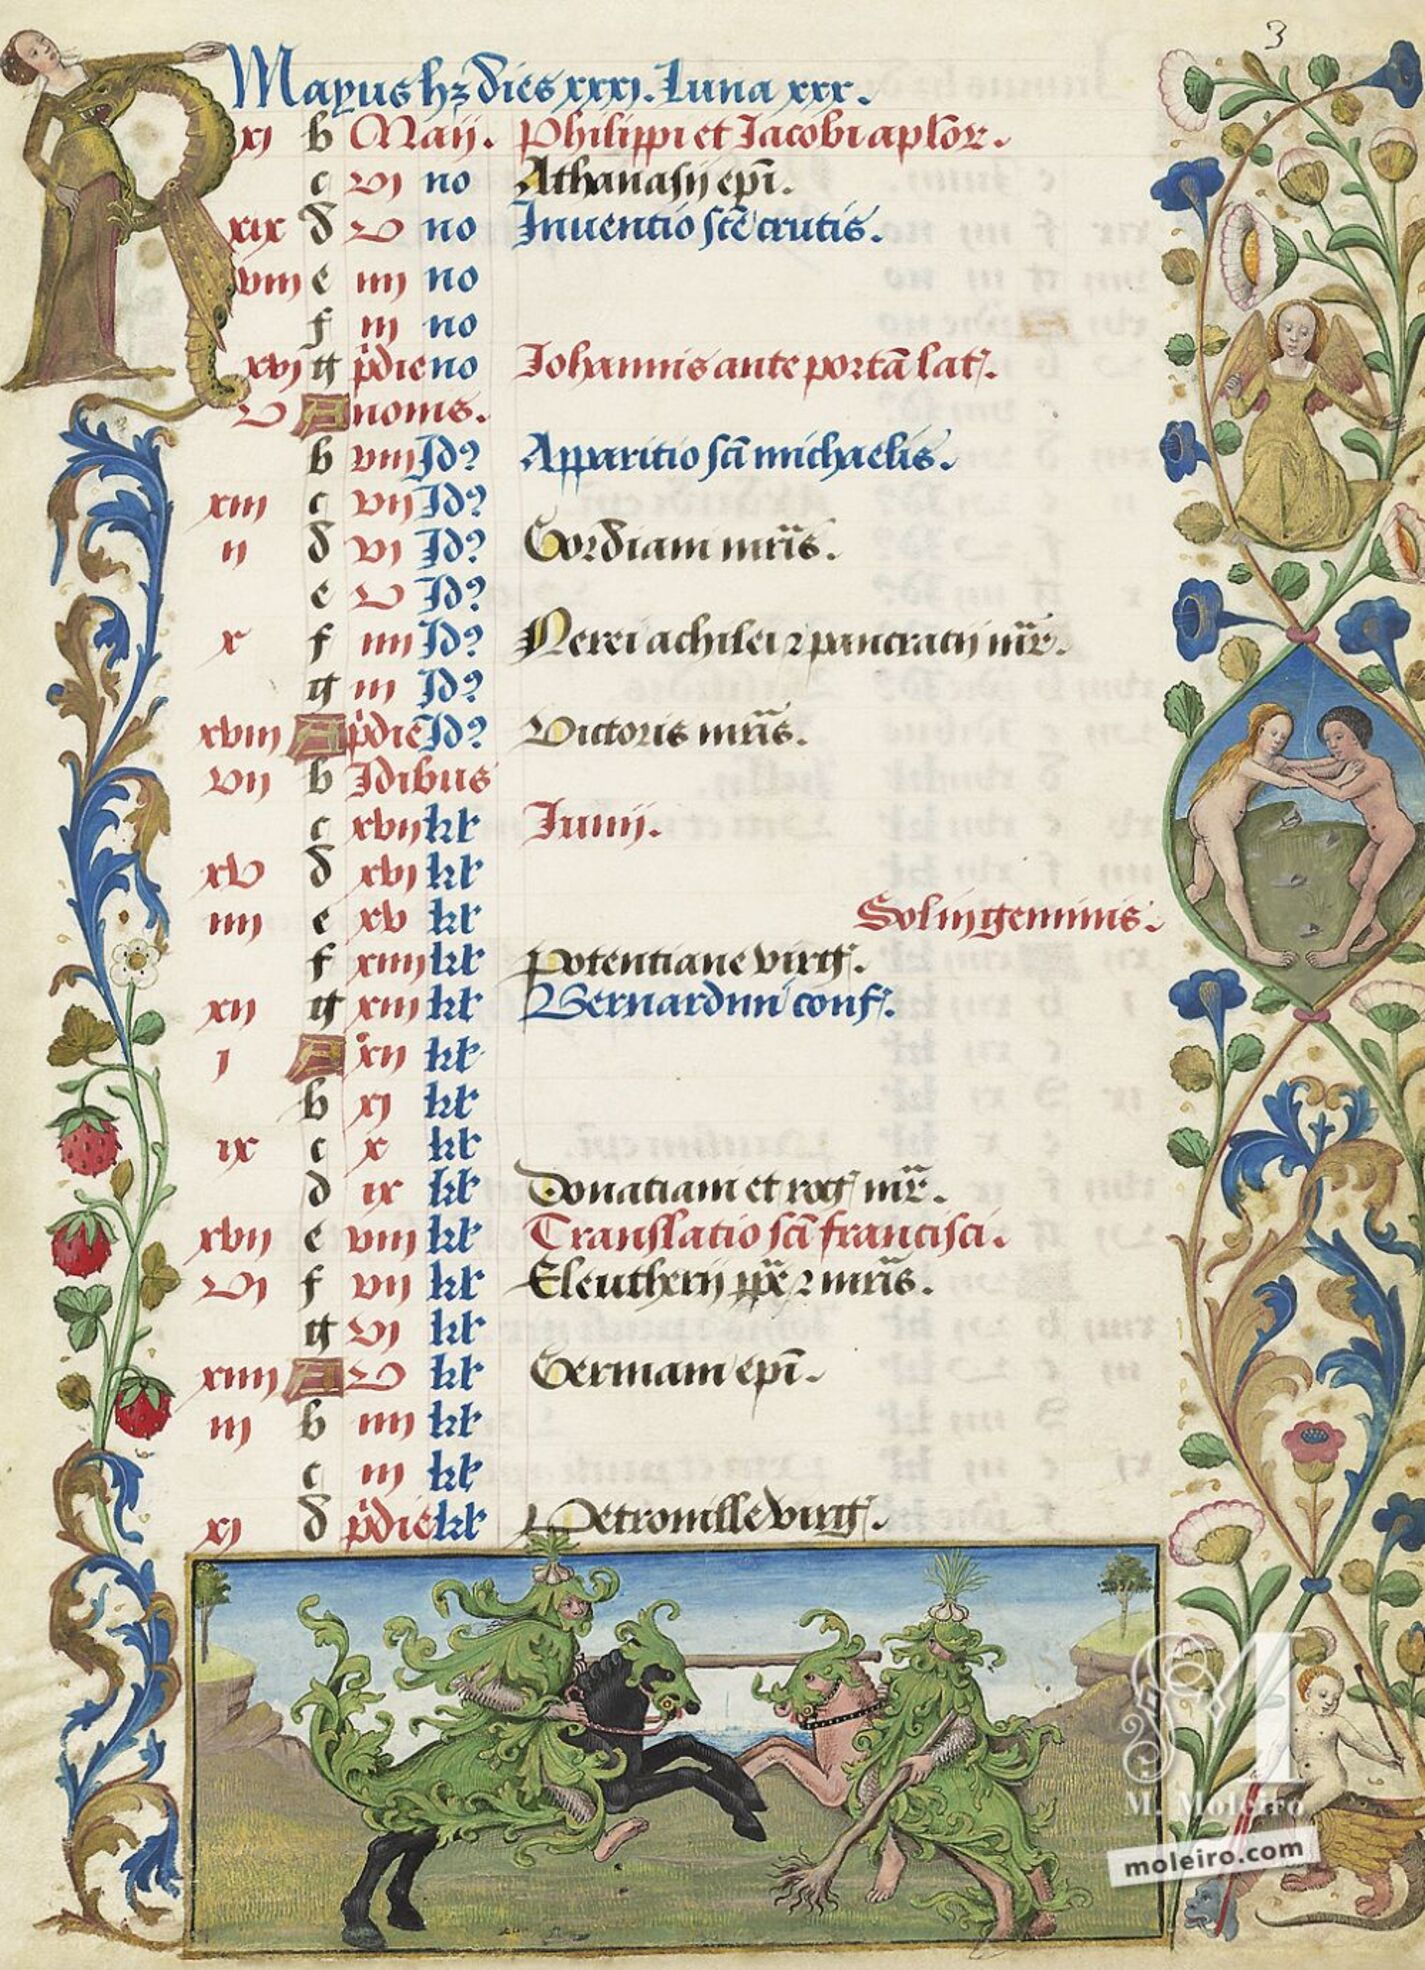 3
Mayus hz dies xxxi. Luna xxx.
xi b Maij. Philippi et Iacobi aplor.
c vi no Athanasij epi.
xix d v no Inuentio scē crucis.
viii e iiii no
f iii no
xvi g pdie no Iohannis ante portā lat.
v A nonis.
b viii Id? Apparitio sci michaelis.
xiii c vii Id?
ii d vi Id? Gordiani mris.
e v Id?
x f iiii Id? Nerei achilei z pancratij mr.
g iii Id?
xviii A pdie Id? Victoris mris.
vii b Idibus
c xvii kl Iunij.
xv d xvi kl
iiii e xv kl Sol in geminis.
f xiiii kl Potentiane virg.
xii g xiii kl Bernardini conf.
i A xii kl
b xi kl
ix c x kl
d ix kl Donatiani et rog mr.
xvii e viii kl Translatio sci francisci.
vi f vii kl Eleutherij ppe z mris.
g vi kl
xiiii A v kl Germani epi.
iii b iiii kl
c iii kl
xi d pdie kl Petronille virg.
M
M. Moleiro
moleiro.com